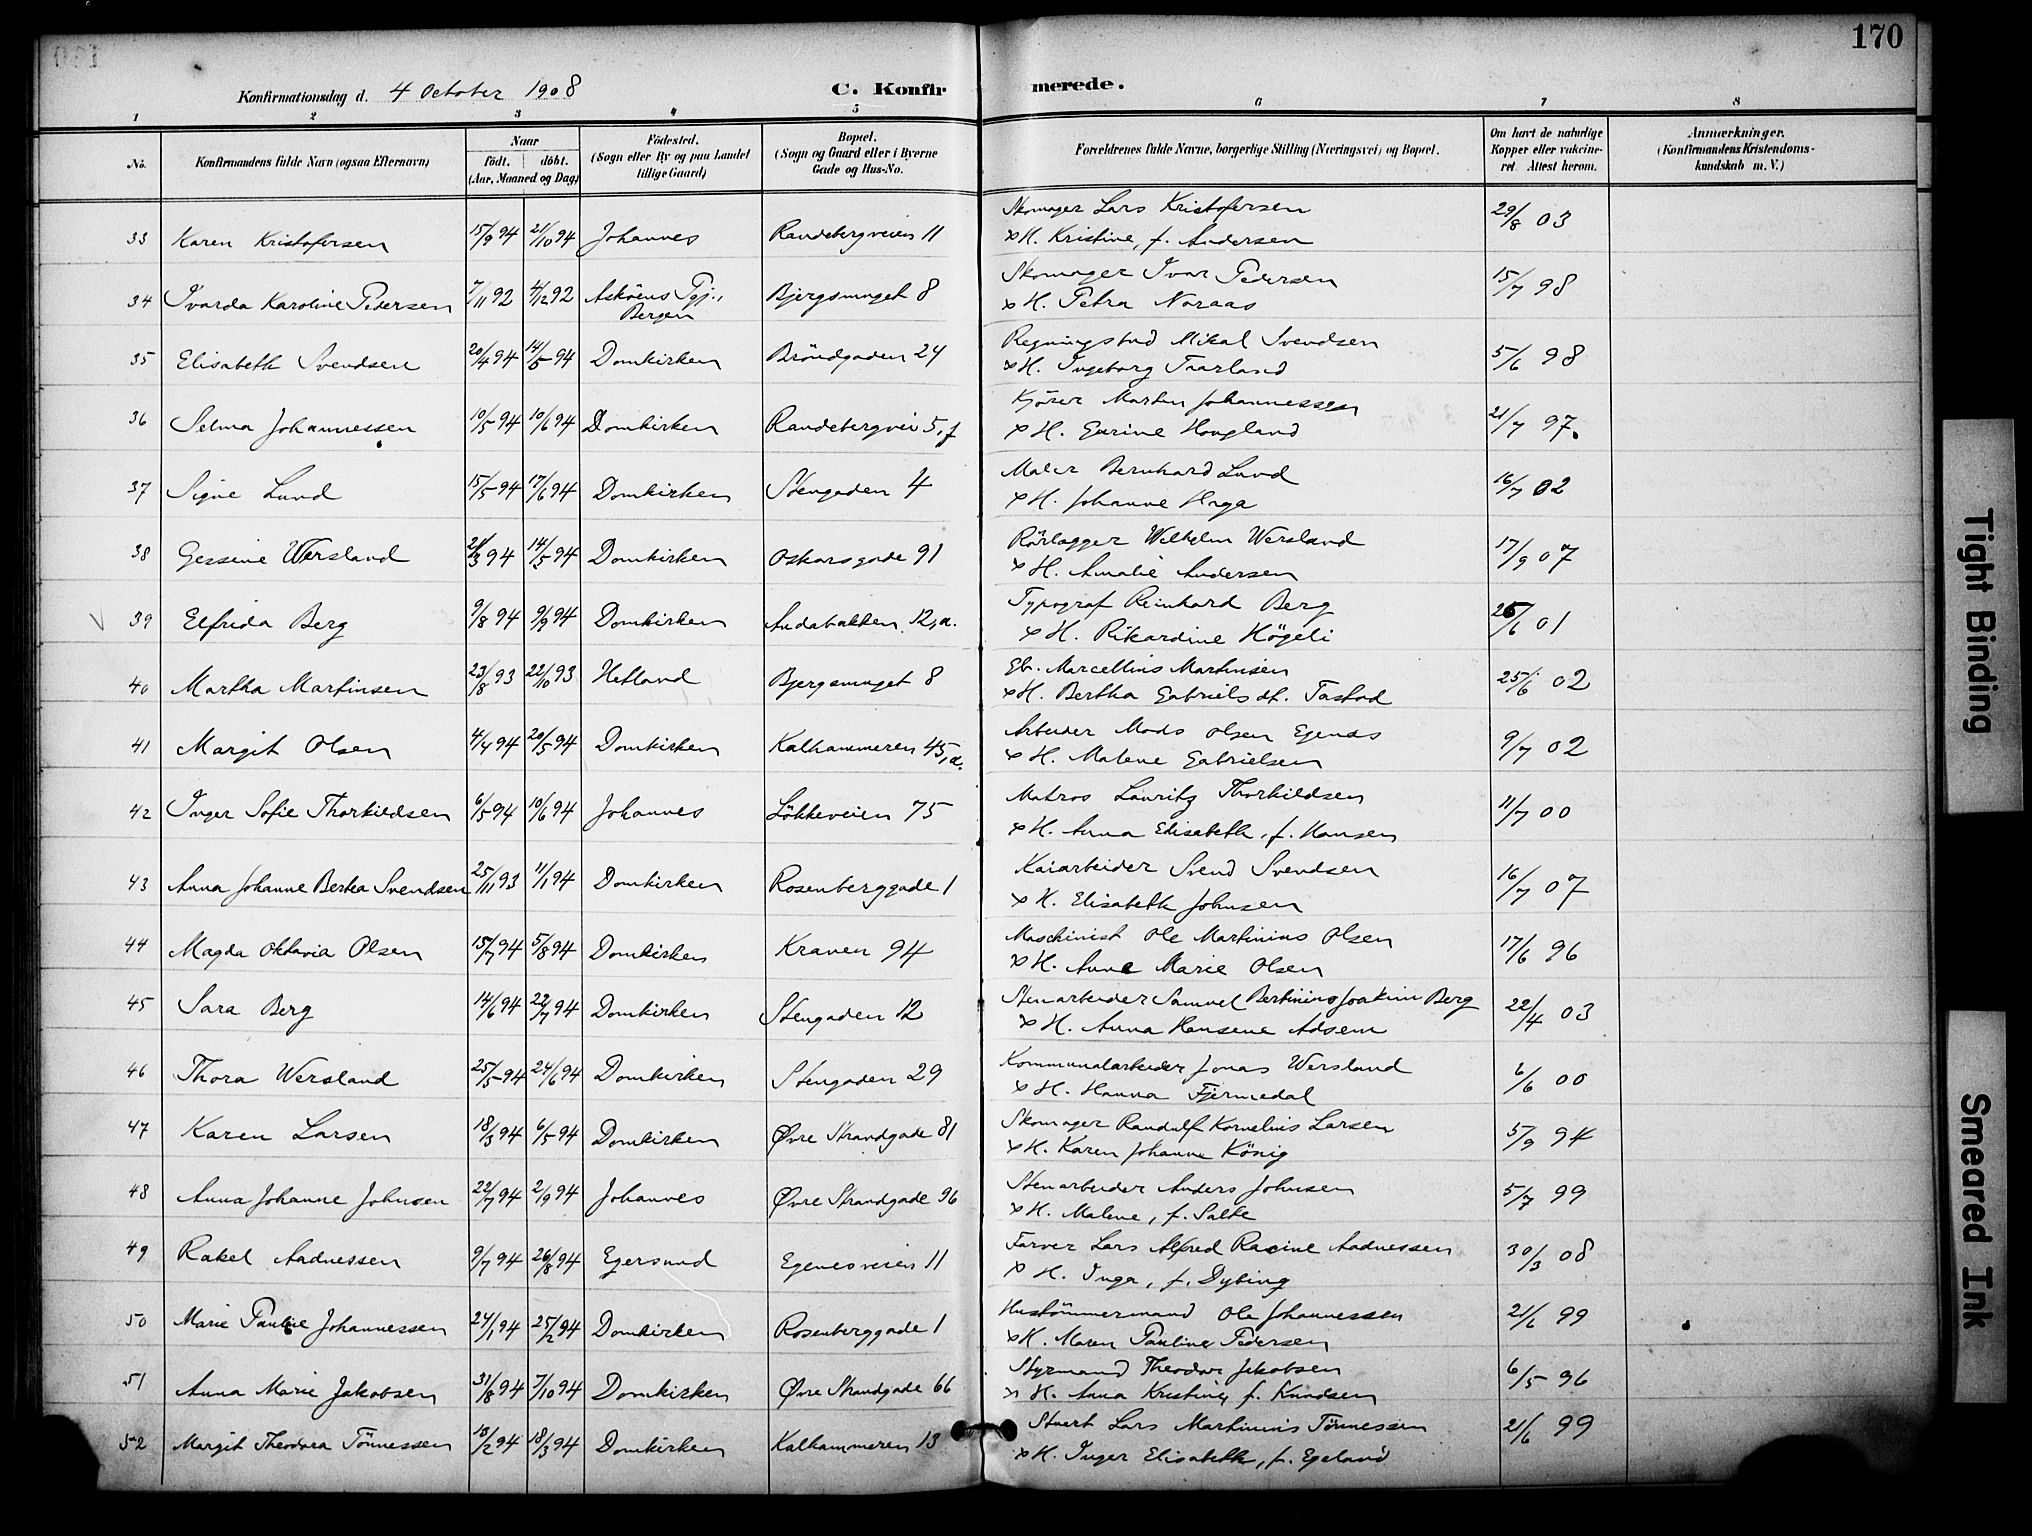 170
Konfirmationsdag d. 4 October 1908 C. Konfirmerede.
1 2 3 4 5 6 7 8
No. Konfirmandens fulde Navn (ogsaa Efternavn) Naar født. døbt. (Aar, Maaned og Dag) Fødested. (Sogn eller By og paa Landet tillige Gaard) Bopæl. (Sogn og Gaard eller i Byerne Gade og Hus-No. Forældrenes fulde Navne, borgerlige Stilling (Næringsvei) og Bopæl. Om havt de naturlige Kopper eller vakcineret. Attest herom. Anmærkninger. (Konfirmandens Kristendomskundskab m. V.)
33 Karen Kristofersen 15/9 94 21/10 94 Johannes Randebergveien 11 Skomager Lars Kristofersen 29/8 03
& H. Kristine, f. Andersen
34 Ivarda Karoline Pedersen 7/11 92 4/12 92 Askøens Pgj., Bergen Bjergsmuget 8 Skomager Ivar Pedersen 15/7 98
& H. Petra Noraas
35 Elisabeth Svendsen 20/4 94 14/5 94 Domkirken Bröndgaden 24 Regningsbud Mikal Svendsen 5/6 98
& H. Ingeborg Tnarland
36 Selma Johannessen 10/5 94 10/6 94 Domkirken Randebergvei 5, f Kjører Martin Johannessen 21/7 97.
& H. Gurine Hougland
37 Signe Lund 15/5 94 17/6 94 Domkirken Stengaden 4 Maler Bernhard Lund 16/7 02
& H. Johanne Haga
38 Gessine Wersland 21/3 94 14/5 94 Domkirken Oskarsgade 91 Rörlægger Wilhelm Wersland 17/9 07
& H. Amalie Andersen
39 Elfrida Berg 9/8 94 9/9 94 Domkirken Andabakken 12, a. Typograf Reinhard Berg 25/6 01
& H. Rikardine Högeli
40 Martha Martinsen 23/8 93 22/10 93 Hetland Bjergsmuget 8 Eb. Marcellius Martinsen 25/6 02
& H. Bertha Gabrielsdt. Tastad
41 Margit Olsen 4/4 94 20/5 94 Domkirken Kalhammeren 45, a. Arbeider Mads Olsen Egenæs 9/7 02
& H. Malene Gabrielsen
42 Inger Sofie Thorkildsen 6/5 94 10/6 94 Johannes Lökkeveien 75 Matros Lauritz Thorkildsen 11/7 00
& H. Anna Elisabeth, f. Hansen
43 Anna Johanne Bertea Svendsen 25/11 93 11/1 94 Domkirken Rosenberggade 1 Kaiarbeider Svend Svendsen 16/7 07
& H. Elisabeth Johnsen
44 Magda Oktavia Olsen 15/7 94 5/8 94 Domkirken Kranen 94 Maschinist Ole Martinius Olsen 17/6 96
& H. Anne Marie Olsen
45 Sara Berg 14/6 94 22/7 94 Domkirken Stengaden 12 Stenarbeider Samuel Bertinius Joakim Berg 22/4 03
& H. Anna Hansene Adsem
46 Thora Wersland 25/5 94 24/6 94 Domkirken Stengaden 29 Kommunalarbeider Jonas Wersland 6/6 00
& H. Hanna Fjermedal
47 Karen Larsen 18/3 94 6/5 94 Domkirken Øvre Strandgade 81 Skomager Randulf Kornelius Larsen 5/9 94
& H. Karen Johanne König
48 Anna Johanne Johnsen 22/7 94 2/9 94 Johannes Øvre Strandgade 96 Stenarbeider Anders Johnsen 5/7 99
& H. Malene, f. Salte
49 Rakel Aadnessen 9/7 94 26/8 94 Egersund Egenesveien 11 Farver Lars Alfred Racine Aadnessen 30/3 08
& H. Inga, f. Dybing
50 Marie Pauline Johannessen 24/1 94 25/2 94 Domkirken Rosenberggade 1 Hustömmermand Ole Johannessen 21/6 99
& H. Maren Pauline Pedersen
51 Anna Marie Jakobsen 31/8 94 7/10 94 Domkirken Øvre Strandgade 66 Styrmand Theodor Jakobsen 6/5 96
& H. Anna Kristine, f. Knudsen
52 Margit Theodora Tönnessen 13/2 94 18/3 94 Domkirken Kalhammeren 13 Stuert Lars Martinius Tönnessen 21/6 99
& H. Inger Elisabeth, f. Egeland
Tight Binding
Smeared Ink